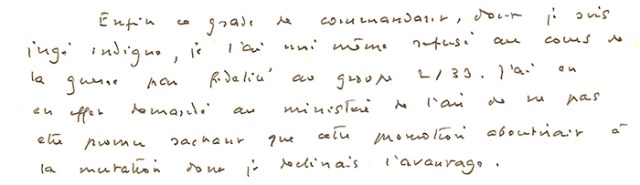 Enfin ce grade de commandant, dont je suis
jugé indigne, je l'ai moi même refusé au cours de
la guerre par fidélité au groupe 2/33. J'ai en
en effet demandé au ministère de l'air de ne pas
être promu sachant que cette promotion aboutirait à
la mutation dont je déclinais l'avantage.